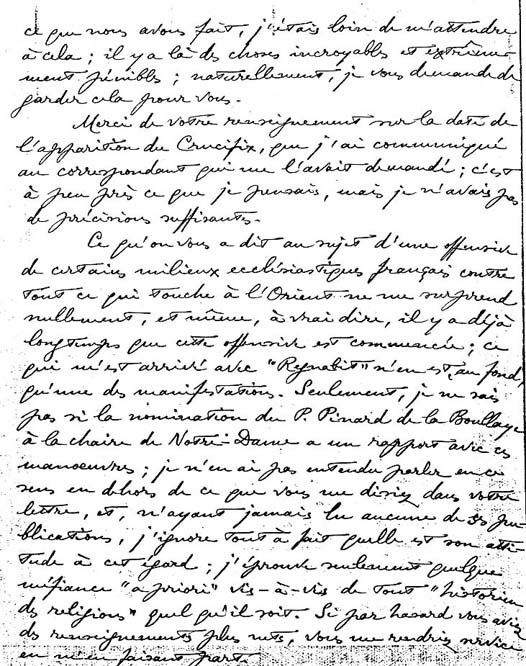 ce que nous avons fait, j'étais loin de m'attendre
à cela ; il y a là des choses incroyables et extrême-
ment pénibles ; naturellement, je vous demande de
garder cela pour vous.
Merci de votre renseignement sur la date de
l'apparition du Crucifix, que j'ai communiqué
au correspondant qui me l'avait demandé ; c'est
à peu près ce que je pensais, mais je n'avais pas
de précisions suffisantes.
Ce qu'on vous a dit au sujet d'une offensive
de certains milieux ecclésiastiques français contre
tout ce qui touche à l'Orient ne me surprend
nullement, et même, à vrai dire, il y a déjà
longtemps que cette offensive est commencée ; ce
qui m'est arrivé avec "Regnabit" n'en est, au fond,
qu'une des manifestations. Seulement, je ne sais
pas si la nomination du P. Pinard de la Boullaye
à la chaire de Notre-Dame a un rapport avec ces
manoeuvres ; je n'en ai pas entendu parler en ce
sens en dehors de ce que vous me disiez dans votre
lettre, et, n'ayant jamais lu aucune de ses pu-
blications, j'ignore tout à fait quelle est son atti-
tude à cet égard ; j'éprouve seulement quelque
méfiance "a priori" vis-à-vis de tout "historien
des religions" quel qu'il soit. Si par hasard vous aviez
des renseignements plus nets, vous me rendriez service
en m'en faisant part.